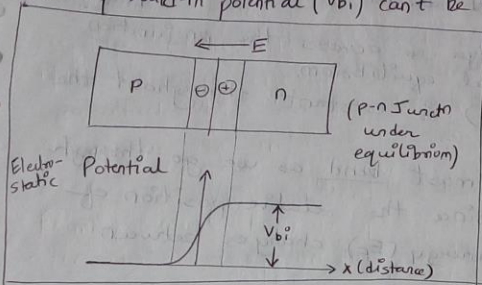 built-in potential (Vbi) can't be
← E
P ⊖ ⊕ n
(p-n Junctn
under
equilibrium)
Electro-
static Potential
Vbi
x (distance)